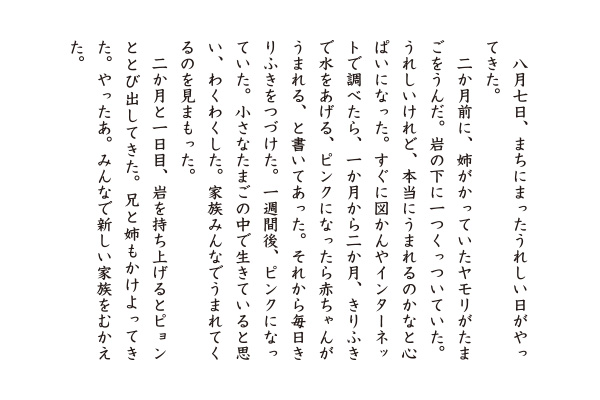 八月七日、まちにまったうれしい日がやっ
てきた。
二か月前に、姉がかっていたヤモリがたま
ごをうんだ。岩の下に一つくっついていた。
うれしいけれど、本当にうまれるのかなと心
ぱいになった。すぐに図かんやインターネッ
トで調べたら、一か月から二か月、きりふき
で水をあげる、ピンクになったら赤ちゃんが
うまれる、と書いてあった。それから毎日き
りふきをつづけた。一週間後、ピンクになっ
ていた。小さなたまごの中で生きていると思
い、わくわくした。家族みんなでうまれてく
るのを見まもった。
二か月と一日目、岩を持ち上げるとピョン
ととび出してきた。兄と姉もかけよってき
た。やったあ。みんなで新しい家族をむかえ
た。